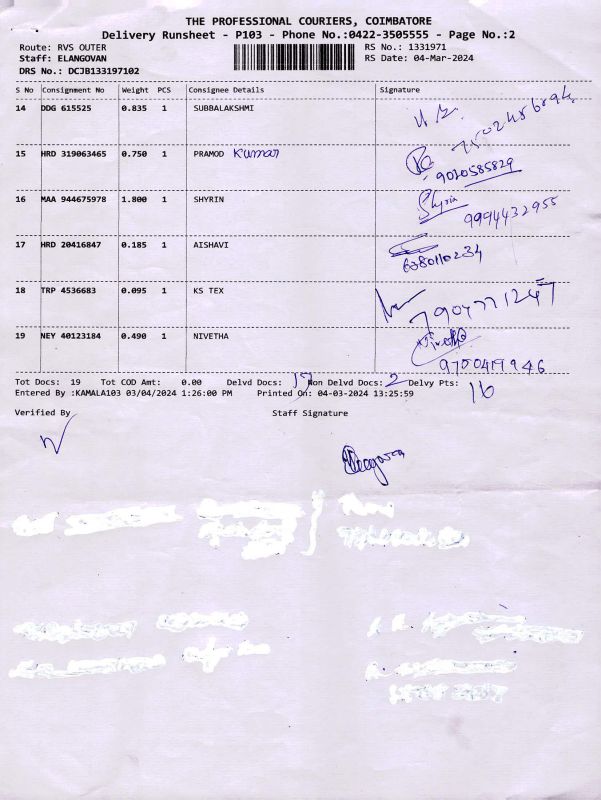 THE PROFESSIONAL COURIERS, COIMBATORE
Delivery Runsheet - P103 - Phone No.:0422-3505555 - Page No.:2
Route: RVS OUTER RS No.: 1331971
Staff: ELANGOVAN RS Date: 04-Mar-2024
DRS No.: DCJB133197102
S No Consignment No Weight PCS Consignee Details Signature
14 DDG 615525 0.835 1 SUBBALAKSHMI
15 HRD 319063465 0.750 1 PRAMOD Kumar
9020585829
16 MAA 944675978 1.800 1 SHYRIN Shyrin
9994432955
17 HRD 20416847 0.185 1 AISHAVI
6380110234
18 TRP 4536683 0.095 1 KS TEX
7904771247
19 NEY 40123184 0.490 1 NIVETHA
Tot Docs: 19 Tot COD Amt: 0.00 Delvd Docs: 17 Non Delvd Docs: 2 Delvy Pts: 16
Entered By :KAMALA103 03/04/2024 1:26:00 PM Printed On: 04-03-2024 13:25:59
Verified By Staff Signature